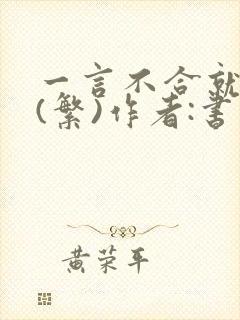 一言不合就
(繁)作者:書
黄荣平